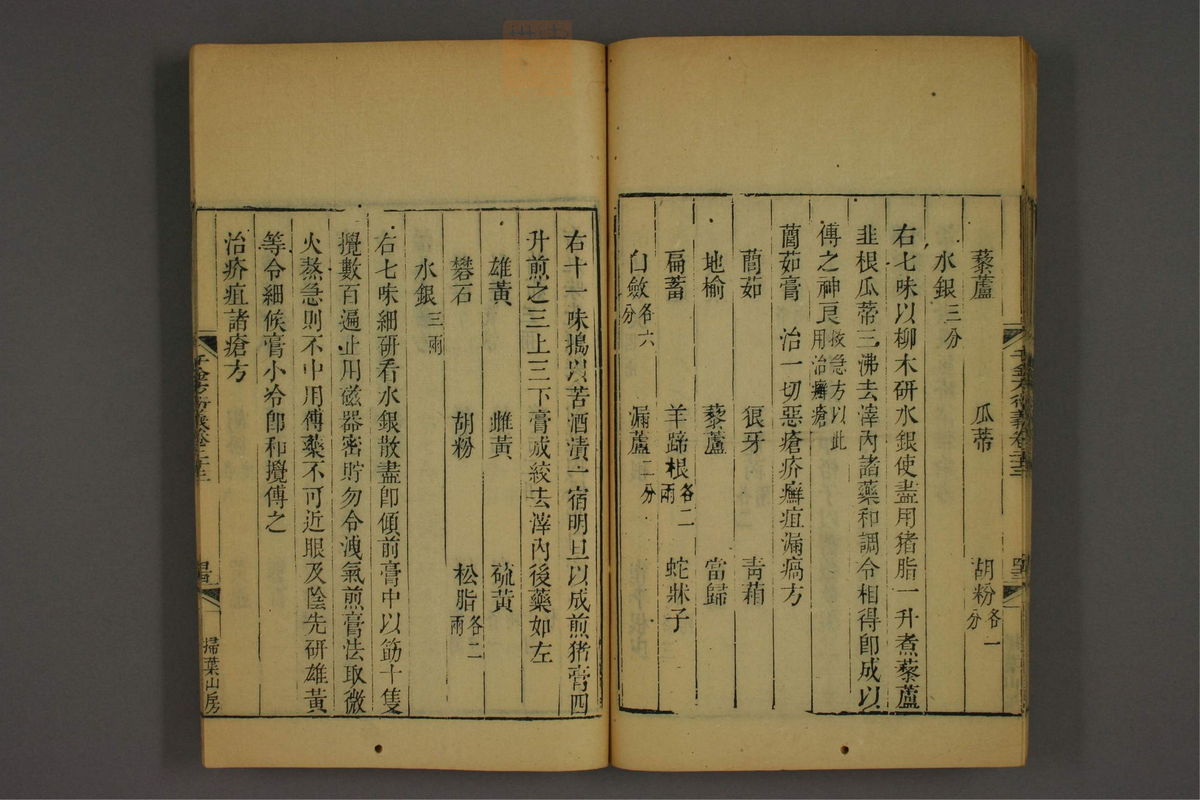 藜蘆 瓜蒂 胡粉各一分
水銀三分
右七味以柳木研水銀使盡用猪脂一升煮藜蘆
韭根瓜蒂三沸去滓內諸藥和調令相得卽成以
傅之神良救急方以此用治癬瘡
䕡茹膏 治一切惡瘡疥癬疽漏瘑方
䕡茹 狼牙 青葙
地榆 藜蘆 當歸
萹蓄 羊蹄根各二兩 蛇牀子
白斂各六分 漏蘆二分
右十一味搗以苦酒漬一宿明旦以成煎猪膏四
升煎之三上三下膏成絞去滓內後藥如左
雄黃 雌黃 硫黃
礬石 胡粉 松脂各二兩
水銀三兩
右七味細研看水銀散盡卽傾前膏中以筯十隻
攪數百遍止用磁器密貯勿令洩氣煎膏法取微
火熬急則不中用傅藥不可近眼及陰先研雄黃
等令細候膏小冷卽和攪傅之
治疥疽諸瘡方
千金方衍義卷二十三
掃葉山房